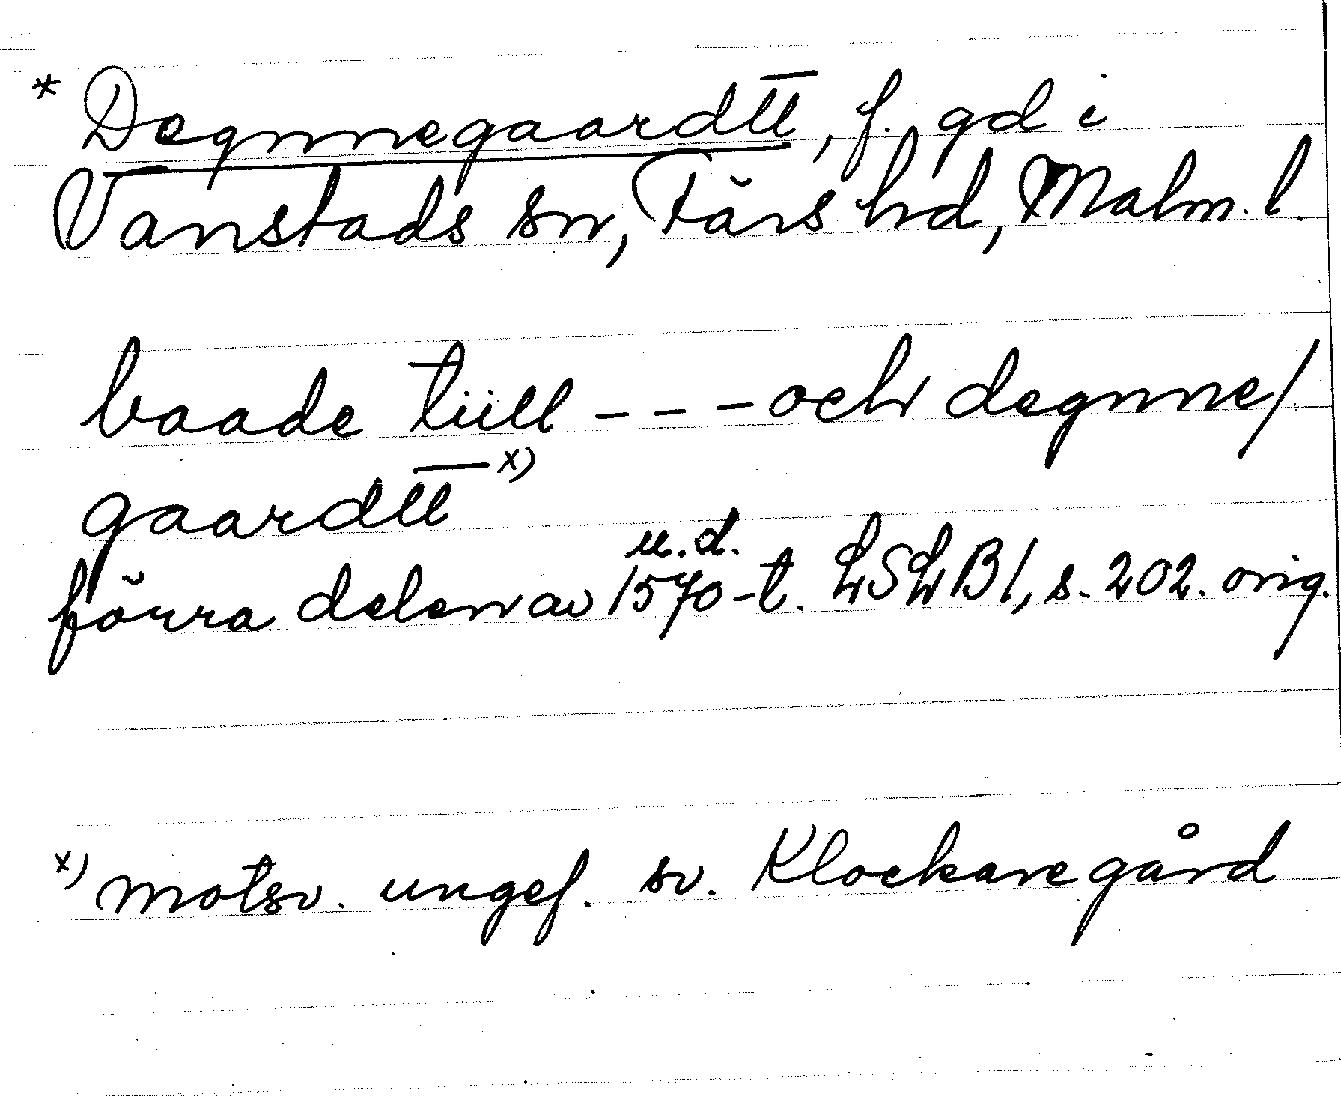 * Degnnegaardtt̅, f. gd i
Vanstads sn, Färs hd, Malm. l.
baade tiill --- och degnne/
gaardtt̅ x)
u.d.
förra delen av 1570-t. LSLB1, s. 202. orig.
x) motsv. ungef. sv. Klockaregård